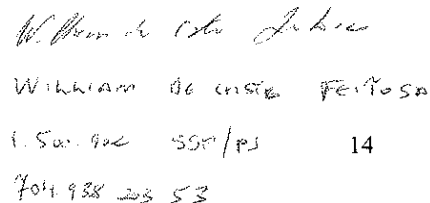 William de
WILLIAM DE COSTA FEITOSA
1.500.902 SSP/PI 14
704.938 203 53